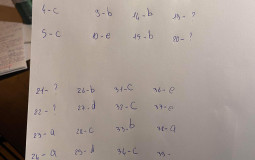 4-c 9-b 14-b 19-?
5-c 10-e 15-b 20-?
21-? 26-b 31-c 36-e
22-? 27-d 32-c 37-e
23-a 28-c 33-b 38-a
24-a 29-d 34-c 39-